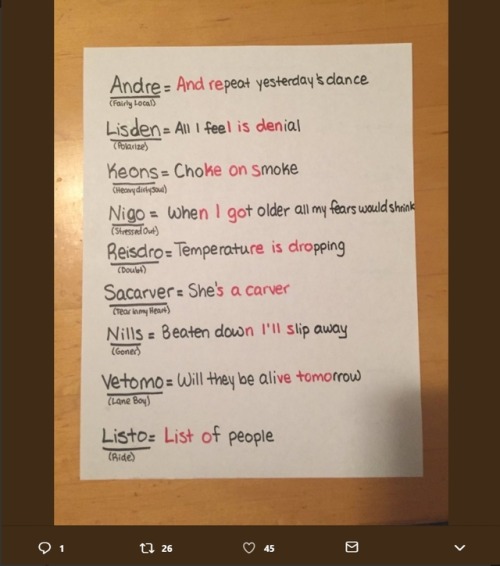 Andre = And repeat yesterday's dance
(Fairly Local)
Lisden = All I feel is denial
(Polarize)
Keons = Choke on smoke
(Heavydirtysoul)
Nigo = When I got older all my fears would shrink
(Stressed Out)
Reisdro = Temperature is dropping
(Doubt)
Sacarver = She's a carver
(Tear in my Heart)
Nills = Beaten down I'll slip away
(Goner)
Vetomo = Will they be alive tomorrow
(Lane Boy)
Listo = List of people
(Ride)
1 26 45